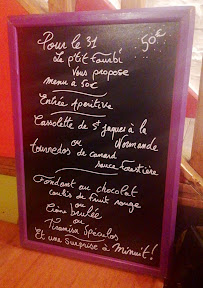 Pour le 31 50€
Le p'tit Fourbi
Vous propose
menu à 50€
Entrée Apéritive
Cassolette de St Jaques à la
ou Normande
tournedos de canard
sauce forestière
Fondant au chocolat
coulis de fruit rouge
ou
Crème brulée
ou
Tiramisu Spéculos
Et une Surprise à Minuit!